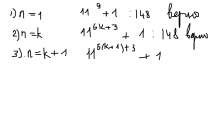 1) n = 1   11^9 + 1 : 148 верно
2) n = k   11^{6k+3} + 1 : 148 верно
3). n = k + 1   11^{6(k+1)+3} + 1